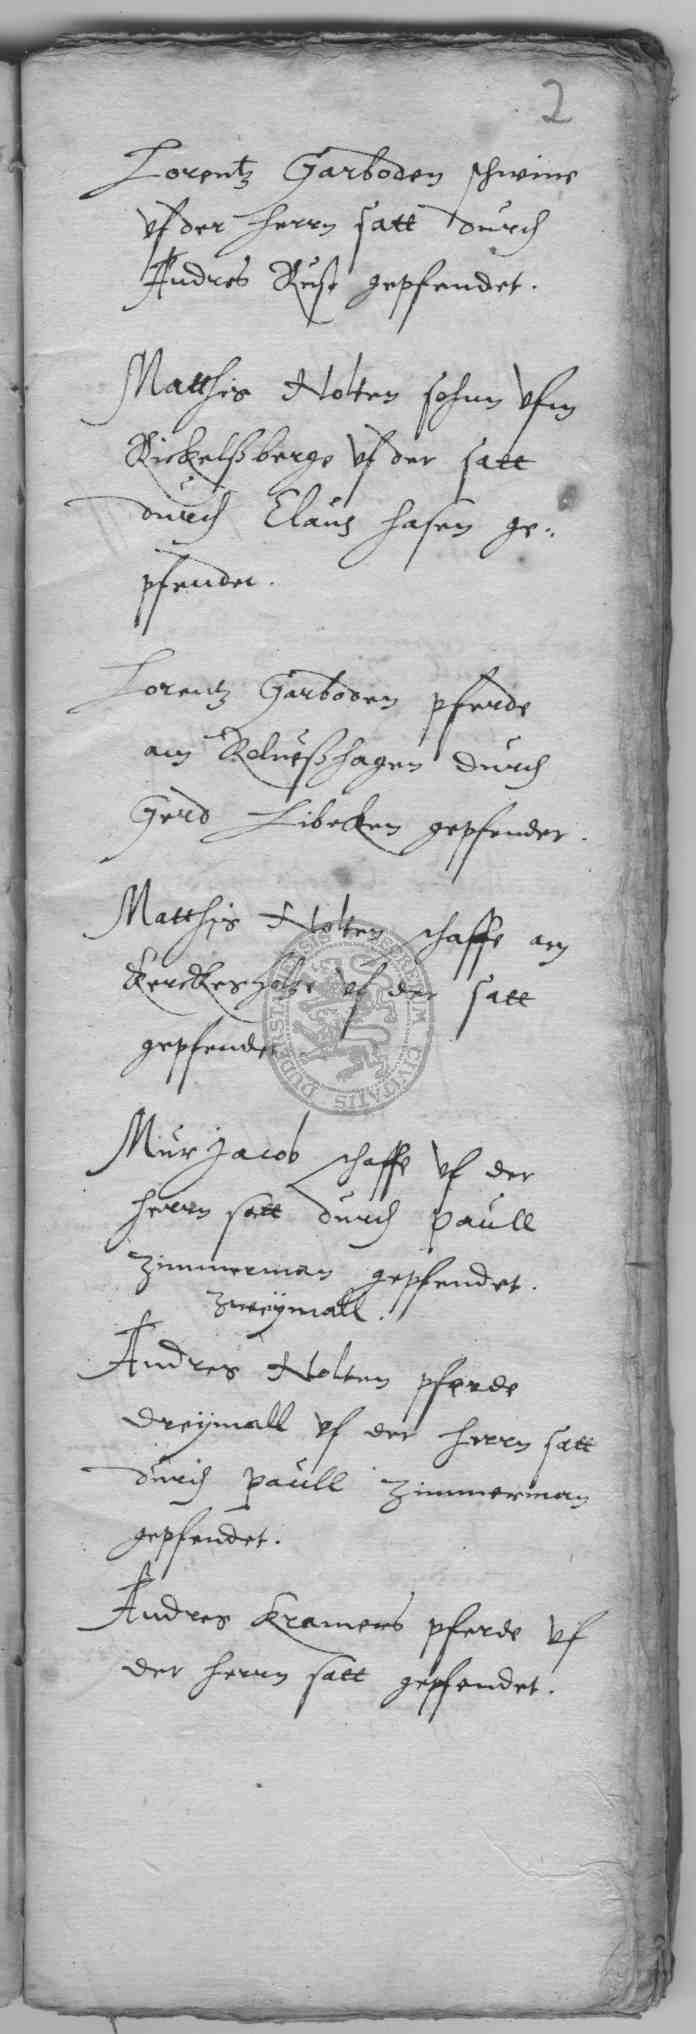 2
Lorentz Garboden schweine
vf der herrn satt durch
Andres Ruse gepfendet.
Matthis Nolten sohnn vfm
Rickelßberge vf der satt
durch Clauß hasen ge-
pfendet.
Lorentz Garboden pferde
am durch
Gerd Libecken gepfendet.
Matthis Nolten schaffe am
vf der satt
gepfendet
Mur Jacob schaffe vf der
herrn satt durch Paull
Zimmerman gepfendet.
zweÿmall.
Andres Nolten pferde
dreÿmall vf der herrn satt
durch Paull Zimmerman
gepfendet.
Andres Kramers pferde vf
der herrn satt gepfendet.
CIVITATIS